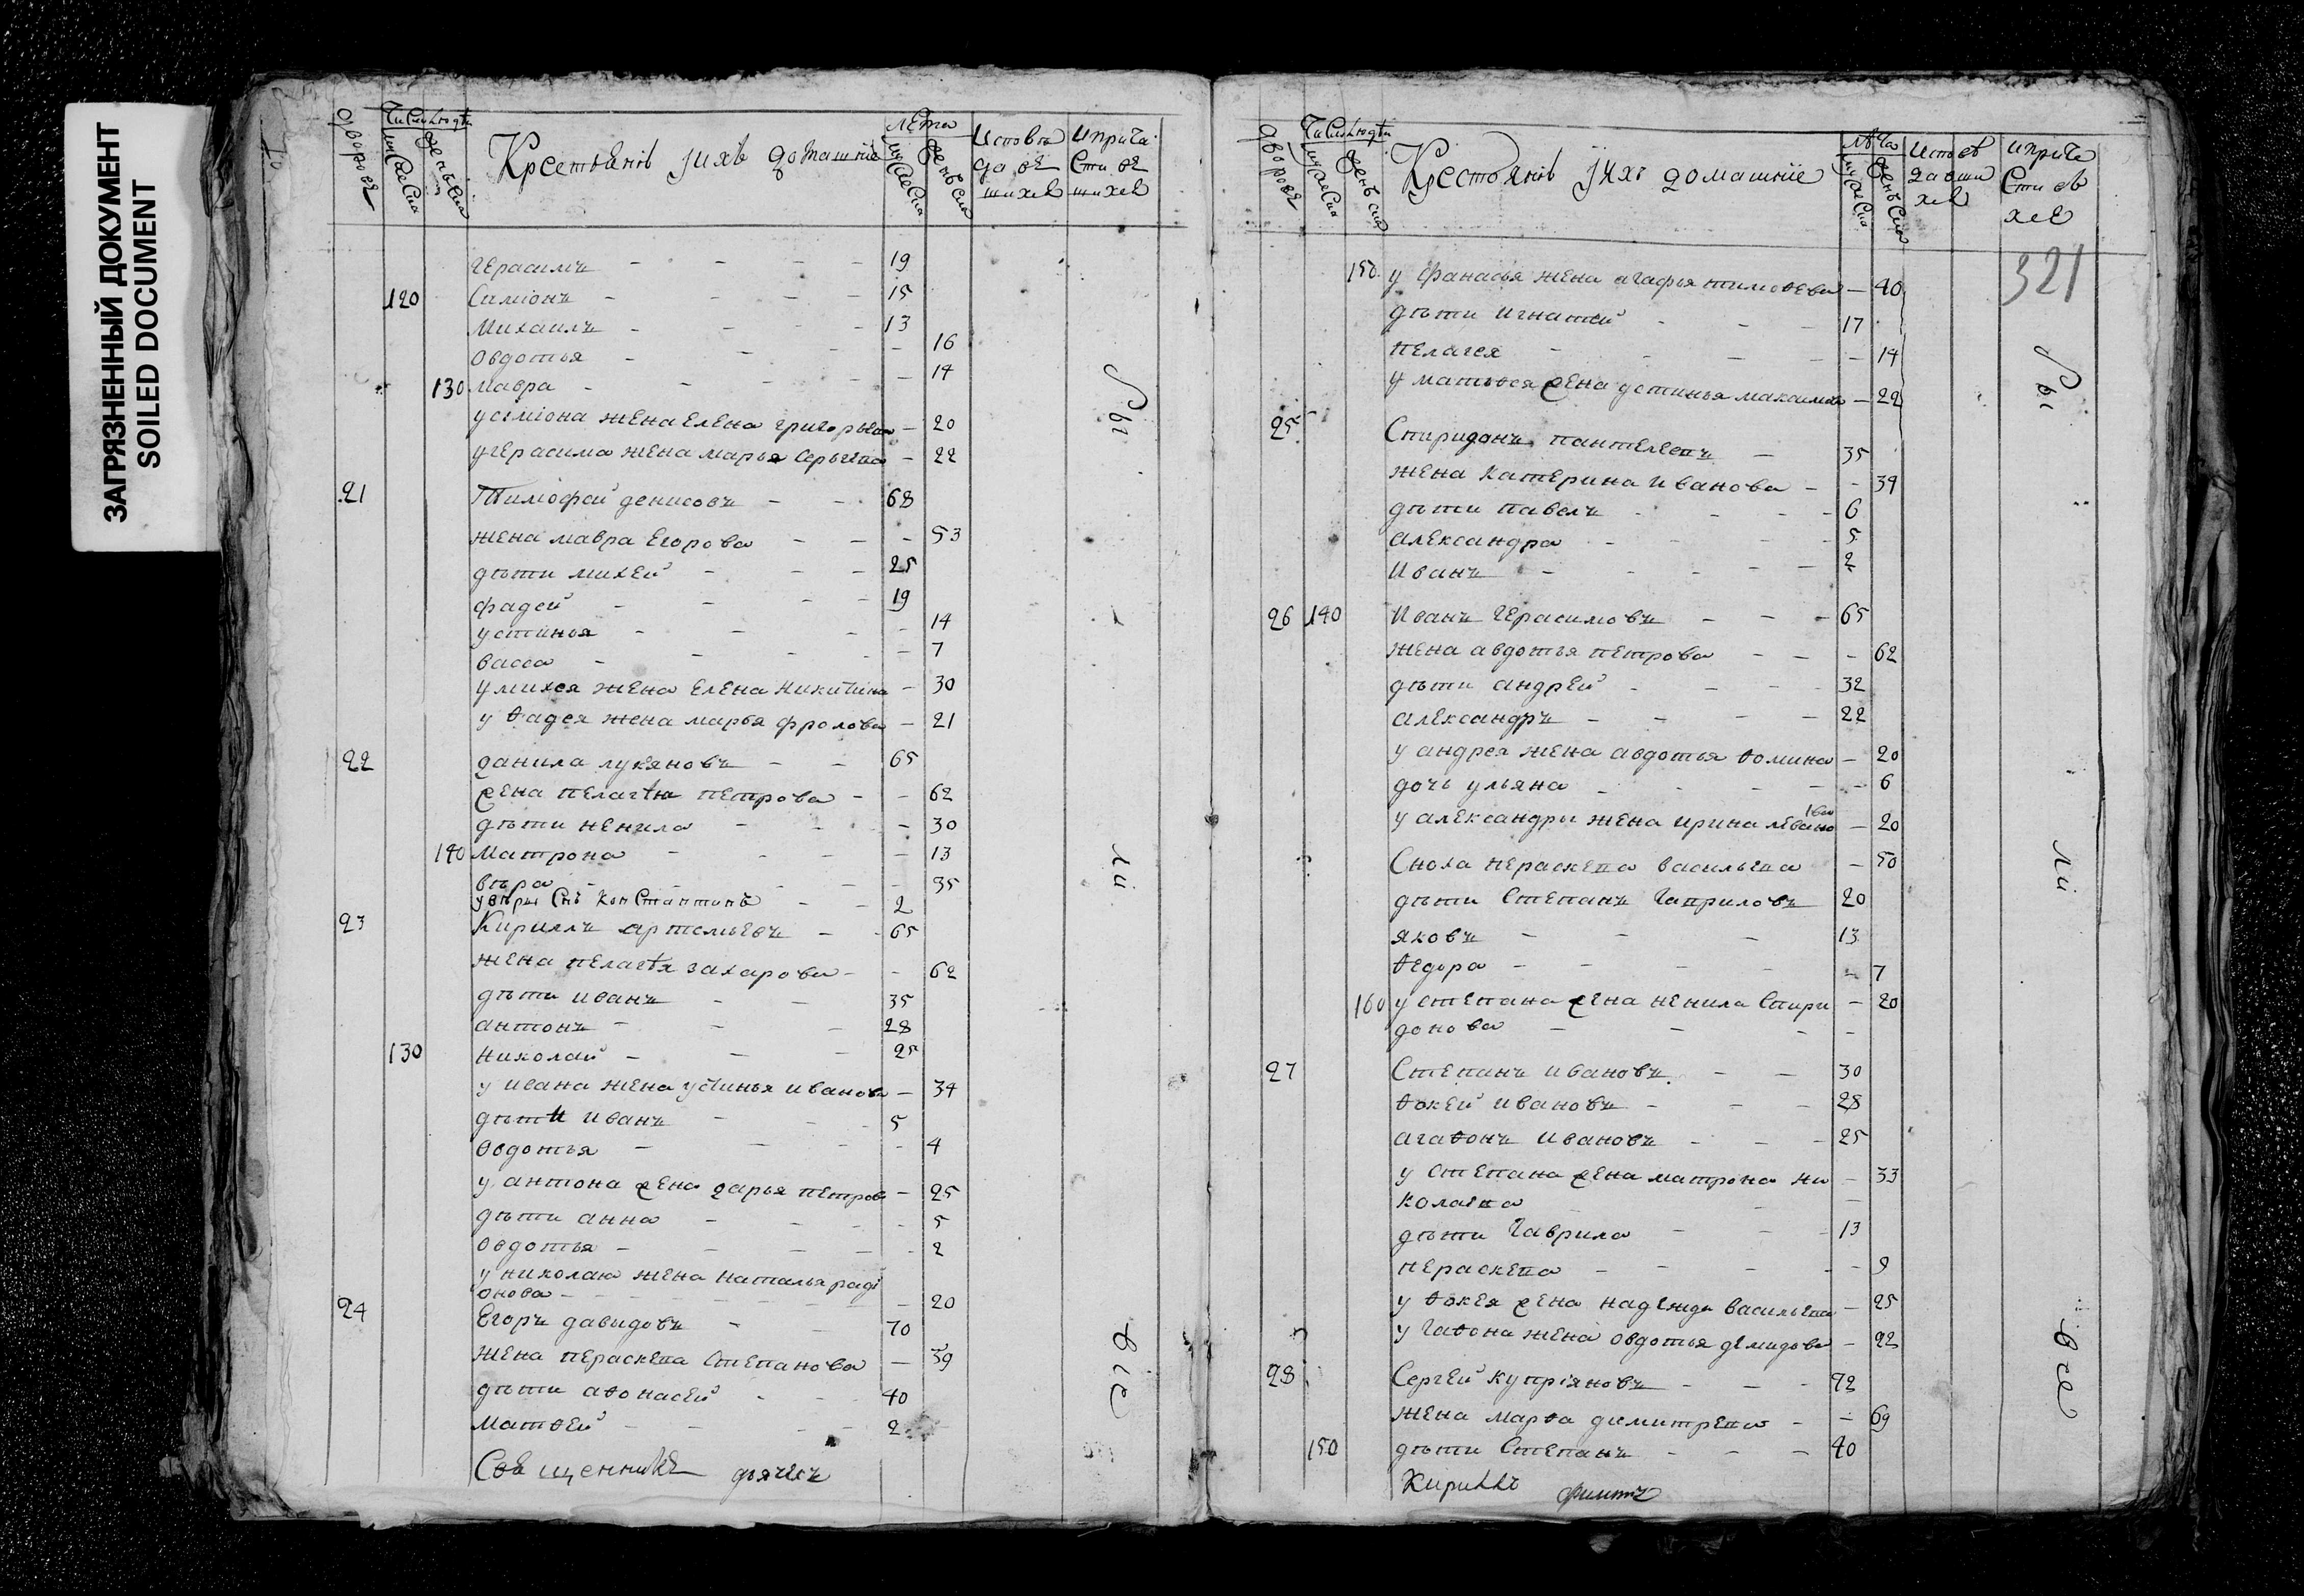 ЗАГРЯЗНЕННЫЙ ДОКУМЕНТ
SOILED DOCUMENT
дворовъ
Число людей
мужеска
женьска
Крестьянѣ ихъ домашніе
лѣта
мужеска
женьска
Исповѣ
давъ
шихсѧ
и прича
стивъ
шихсѧ
герасимъ - - - - 19
120 Симіонъ - - - - 15
Михаилъ - - - - 13
Овдотья - - - - 16
130 мавра - - - - 14
у симіона жена Елена григорьева - 20
у герасима жена марья сергѣева - 22
21 Тимофей денисовъ - - 68
жена мавра Егорова - - - 53
дѣти михей - - - 25
фадей - - - - 19
устинья - - - - 14
васса - - - - 7
у михея жена Елена никитина - 30
у ѳадея жена марья фролова - 21
22 данила лукяновъ - - 65
жена пелагѣя петрова - - 62
дѣти ненила - - - 30
140 Матрона - - - - 13
вѣра - - - - 35
у вѣры Снъ Константинъ - - 2
23 Кириллъ артемьевъ - - 65
жена пелагѣя захарова - - 62
дѣти иванъ - - 35
антонъ - - - 28
130 николай - - - 25
у ивана жена устинья иванова - 34
дѣти иванъ - - - 5
Овдотья - - - - 4
у антона жена дарья петрова - 25
дѣти анна - - - - 5
Овдотья - - - - - 2
у николая жена наталья раді
онова - - - - 20
24 Егоръ давидовъ - - 70
жена пераскева степанова - 39
дѣти аѳонасей - - 40
матвей - - - 2
сы
ли
всѣ
Священникъ дьячекъ
дворовъ
Число людей
мужеска
женьска
Крестьянѣ ихъ домашніе
лѣта
мужеска
женьска
испов
давши
хсѧ
и прича
стив
хсѧ
321
150 у фанасья жена агафья тимоѳева - 40
дѣти игнатей - - - 17
пелагея - - - - 14
у матвея жена устинья максимова - 22
25 Спиридонъ пантелеевъ - 35
жена катерина иванова - - 39
дѣти павелъ - - - - 6
александра - - - - 5
иванъ - - - - 2
26 140 Иванъ герасимовъ - - - 65
жена авдотья петрова - - - 62
дѣти андрей - - - - 32
александръ - - - - 22
у андрея жена авдотья ѳомина - 20
дочь ульяна - - - - - 6
у александры жена ирина - 20
Сноха пераскева васильева - 50
дѣти степанъ гавриловъ 20
яковъ - - - 13
ѳедора - - - - - 7
160 у степана жена ненила спири - 20
донова - - - -
27 Степанъ ивановъ - - 30
ѳокей ивановъ - - - 28
агаѳонъ ивановъ - - - 25
у степана жена матрона ни - 33
колаева - - -
дѣти гаврила - - - 13
пераскева - - - - - 9
у ѳокея жена надежда васильева - 25
у гаѳона жена овдотья демидова - 22
28 Сергей купріяновъ - - - 72
жена марѳа димитрева - - 69
150 дѣти степанъ - - - 40
сы
ли
всѣ
Кириллъ филипъ